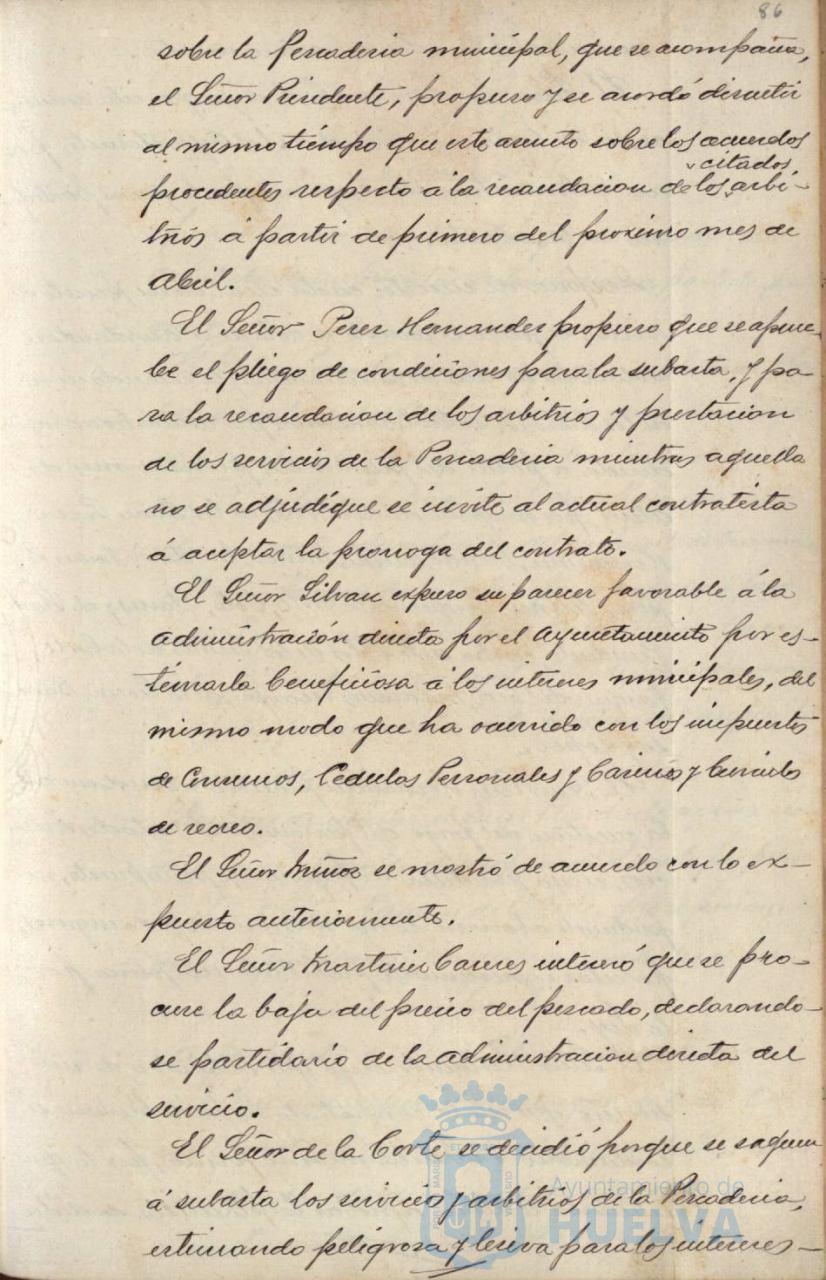 86
sobre la Pescaderia municipal, que se acompaña,
el Señor Presidente, propuso y se acordó discutir
al mismo tiempo que este asunto sobre los acuerdos
procedentes respecto á la recaudacion de los citados arbi-
trios á partir de primero del proximo mes de
Abril.
El Señor Perez Hernandez propuso que se aprue-
be el pliego de condiciones para la subasta, y pa-
ra la recaudacion de los arbitrios y prestacion
de los servicios de la Pescaderia mientras aquella
no se adjudique se invite al actual contratista
á aceptar la prorroga del contrato.
El Señor Silvan expuso su parecer favorable á la
administración directa por el Ayuntamiento por es-
timarla beneficiosa á los intereses municipales, del
mismo modo que ha ocurrido con los impuestos
de Consumos, Cedulas Personales y Casinos y Circulos
de recreo.
El Señor Muñoz se mostró de acuerdo con lo ex-
puesto anteriormente.
El Señor Martinez Caceres interesó que se pro-
cure la baja del precio del pescado, declarando-
se partidario de la administracion directa del
servicio.
El Señor de la Corte se decidió porque se saquen
á subasta los servicios y arbitrios de la Pescaderia,
estimando peligrosa y lesiva para los intereses-
Ayuntamiento de
HUELVA